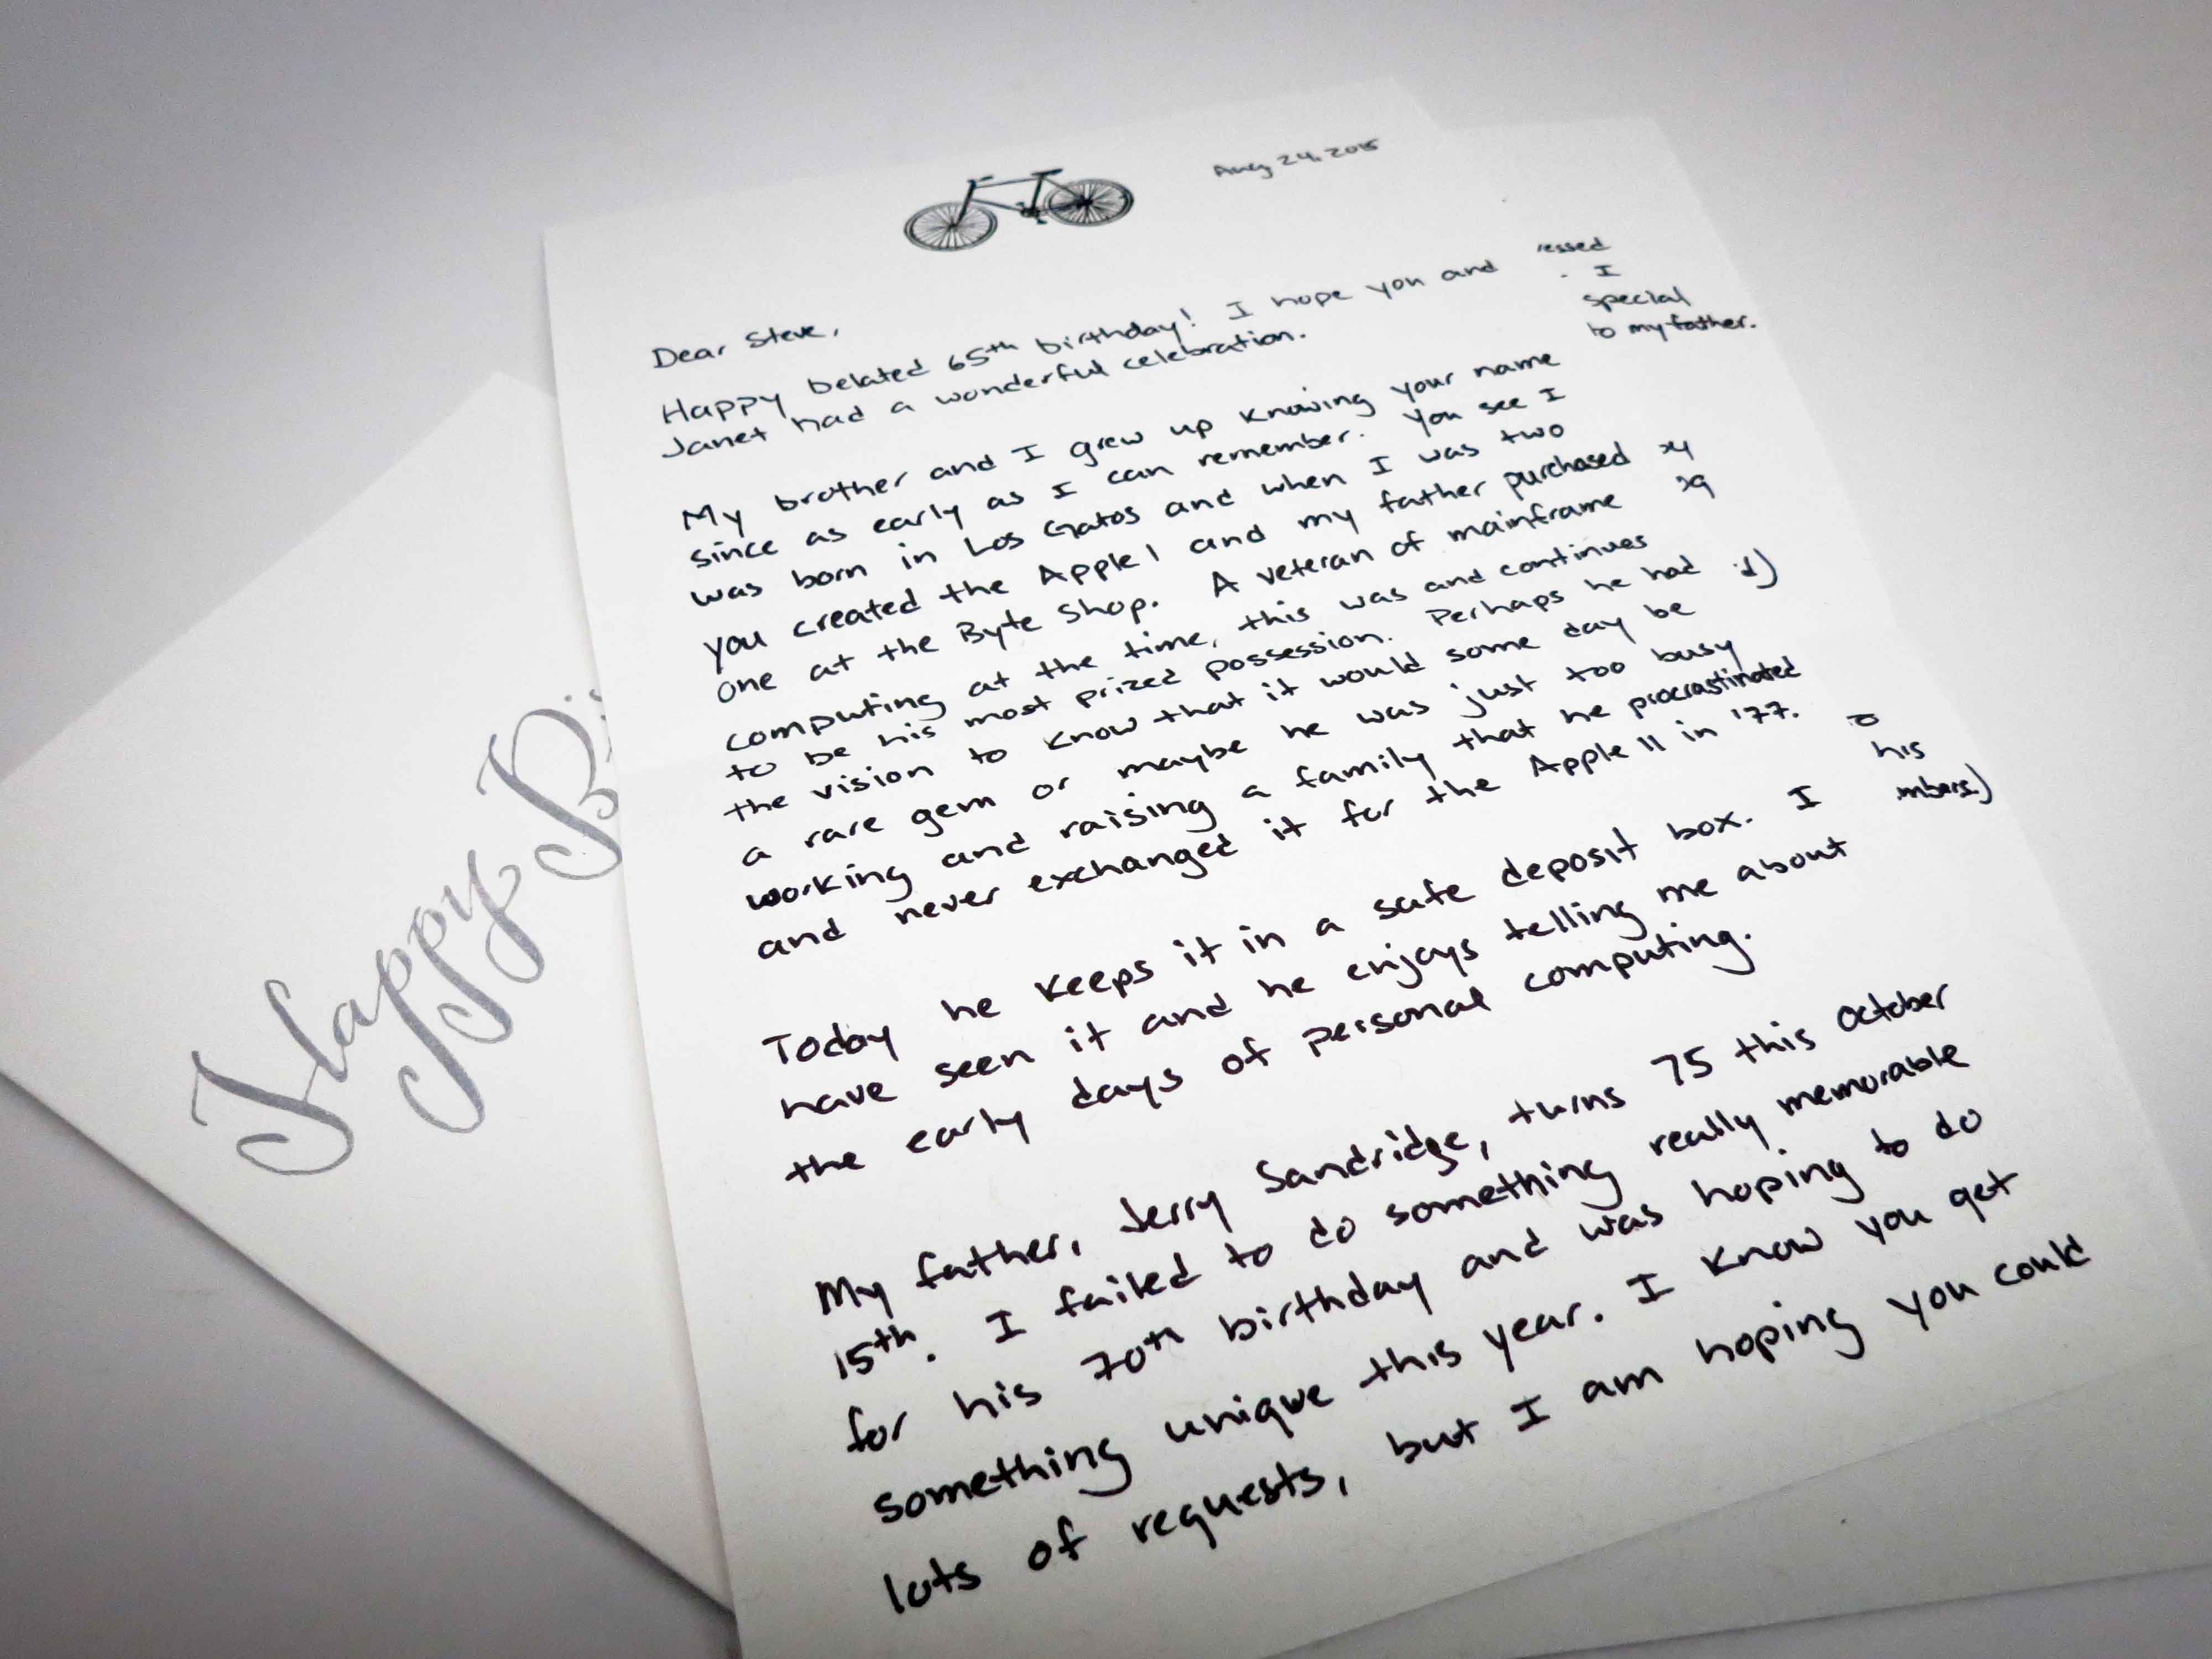 Aug 24, 2015
Dear Steve,
Happy belated 65th birthday! I hope you and
Janet had a wonderful celebration.
My brother and I grew up knowing your name
since as early as I can remember. You see I
was born in Los Gatos and when I was two
you created the Apple 1 and my father purchased
one at the Byte Shop. A veteran of mainframe
computing at the time, this was and continues
to be his most prized possession. Perhaps he had
the vision to know that it would some day be
a rare gem or maybe he was just too busy
working and raising a family that he procrastinated
and never exchanged it for the Apple II in '77.
Today he keeps it in a safe deposit box. I
have seen it and he enjoys telling me about
the early days of personal computing.
My father, Jerry Sandridge, turns 75 this October
15th. I failed to do something really memorable
for his 70th birthday and was hoping to do
something unique this year. I know you get
lots of requests, but I am hoping you could
essed
I
special
to my father.
his
mbers)
Happy Bi